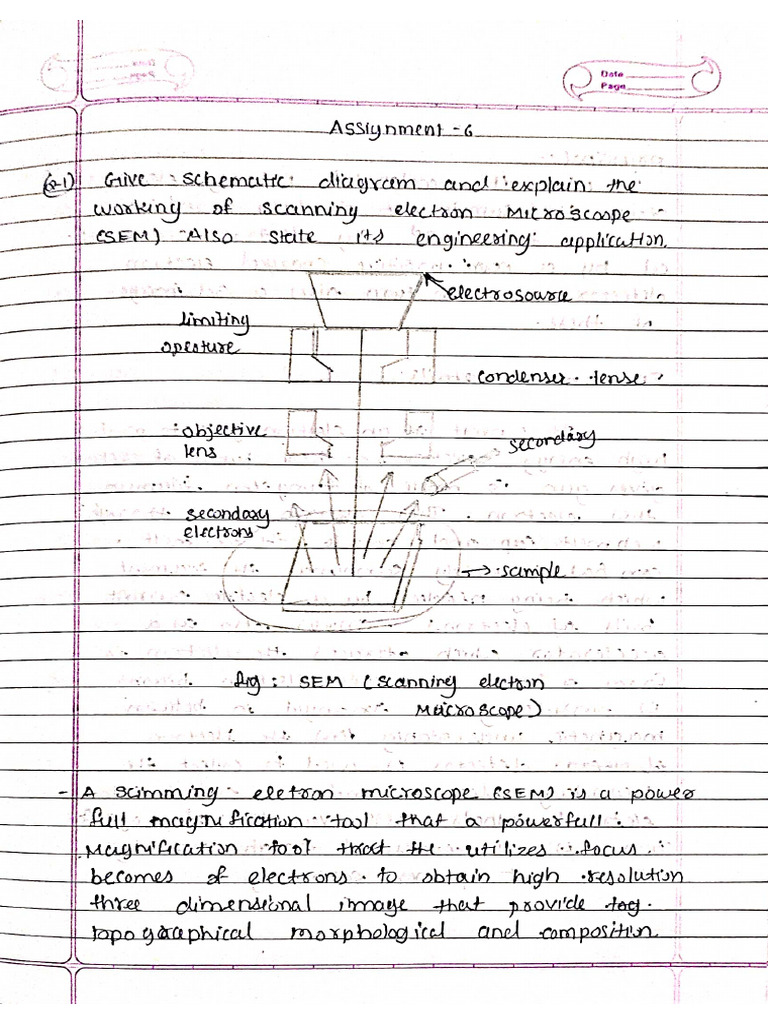 Date
Page
Assignment - 6
Q-1) Give schematic diagram and explain the
working of scanning electron Microscope
(SEM) Also state its engineering application.
electrosource
limiting
aperture
condenser lense
objective
lens
secondary
secondary
electrons
sample
fig : SEM (scanning electron
Macroscope)
- A scimming eletron microscope (SEM) is a power
full magnification tool that a powerfull
Magnification tool that the utilizes focus
becomes of electrons to obtain high resolution
three dimensional image that provide
topographical morphological and composition